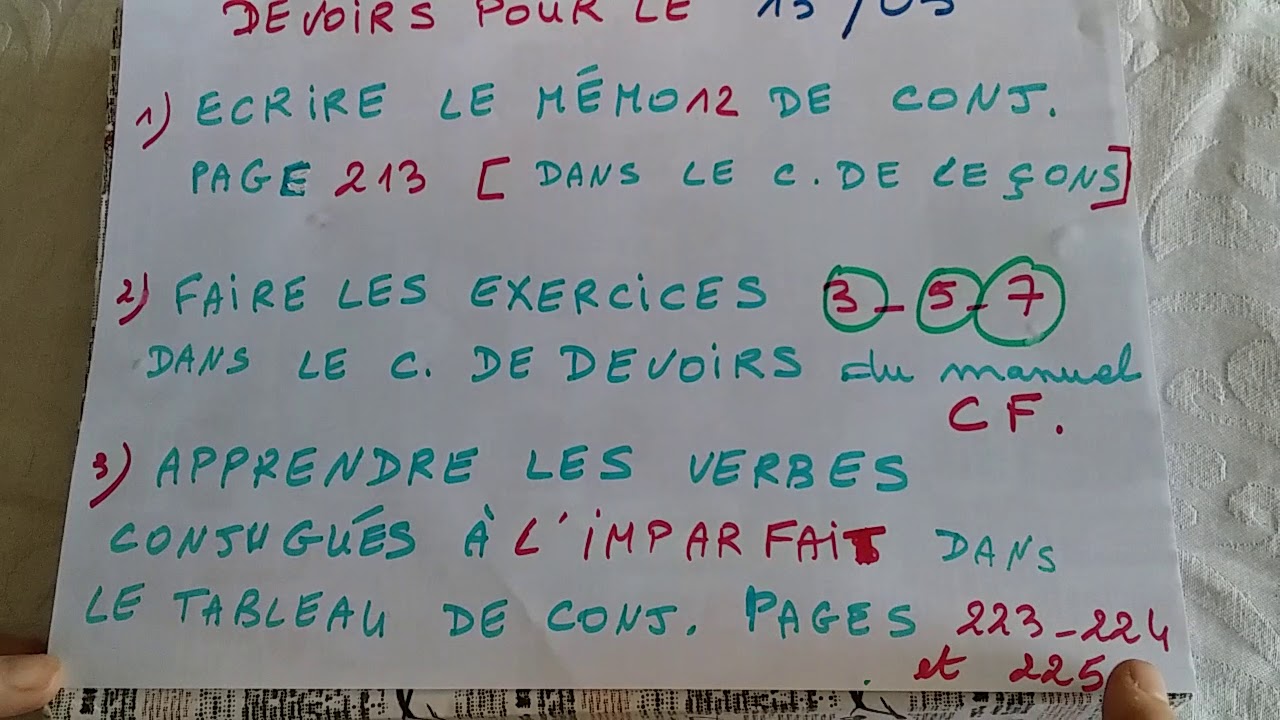 DEVOIRS POUR LE 13/03
1) ECRIRE LE MÉMO 12 DE CONJ.
PAGE 213 [DANS LE C. DE LEÇONS]
2) FAIRE LES EXERCICES 3_5_7
DANS LE C. DE DEVOIRS du manuel
CF.
3) APPRENDRE LES VERBES
CONJUGUÉS À L'IMPARFAIT DANS
LE TABLEAU DE CONJ. PAGES 223_224
et 225